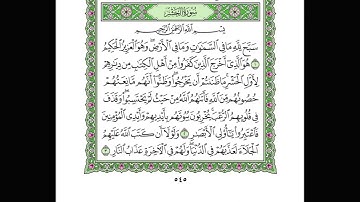 سورة الحشر
بسم الله الرحمن الرحيم
سبح لله ما في السموت وما في الأرض وهو العزيز الحكيم
١ هو الذي أخرج الذين كفروا من أهل الكتب من ديرهم
لأول الحشر ما ظننتم أن يخرجوا وظنوا أنهم مانعتهم
حصونهم من الله فأتىهم الله من حيث لم يحتسبوا وقذف
في قلوبهم الرعب يخربون بيوتهم بأيديهم وأيدي المؤمنين
فاعتبروا يأولي الأبصر ٢ ولولا أن كتب الله عليهم
الجلاء لعذبهم في الدنيا ولهم في الآخرة عذاب النار ٣
٥٤٥